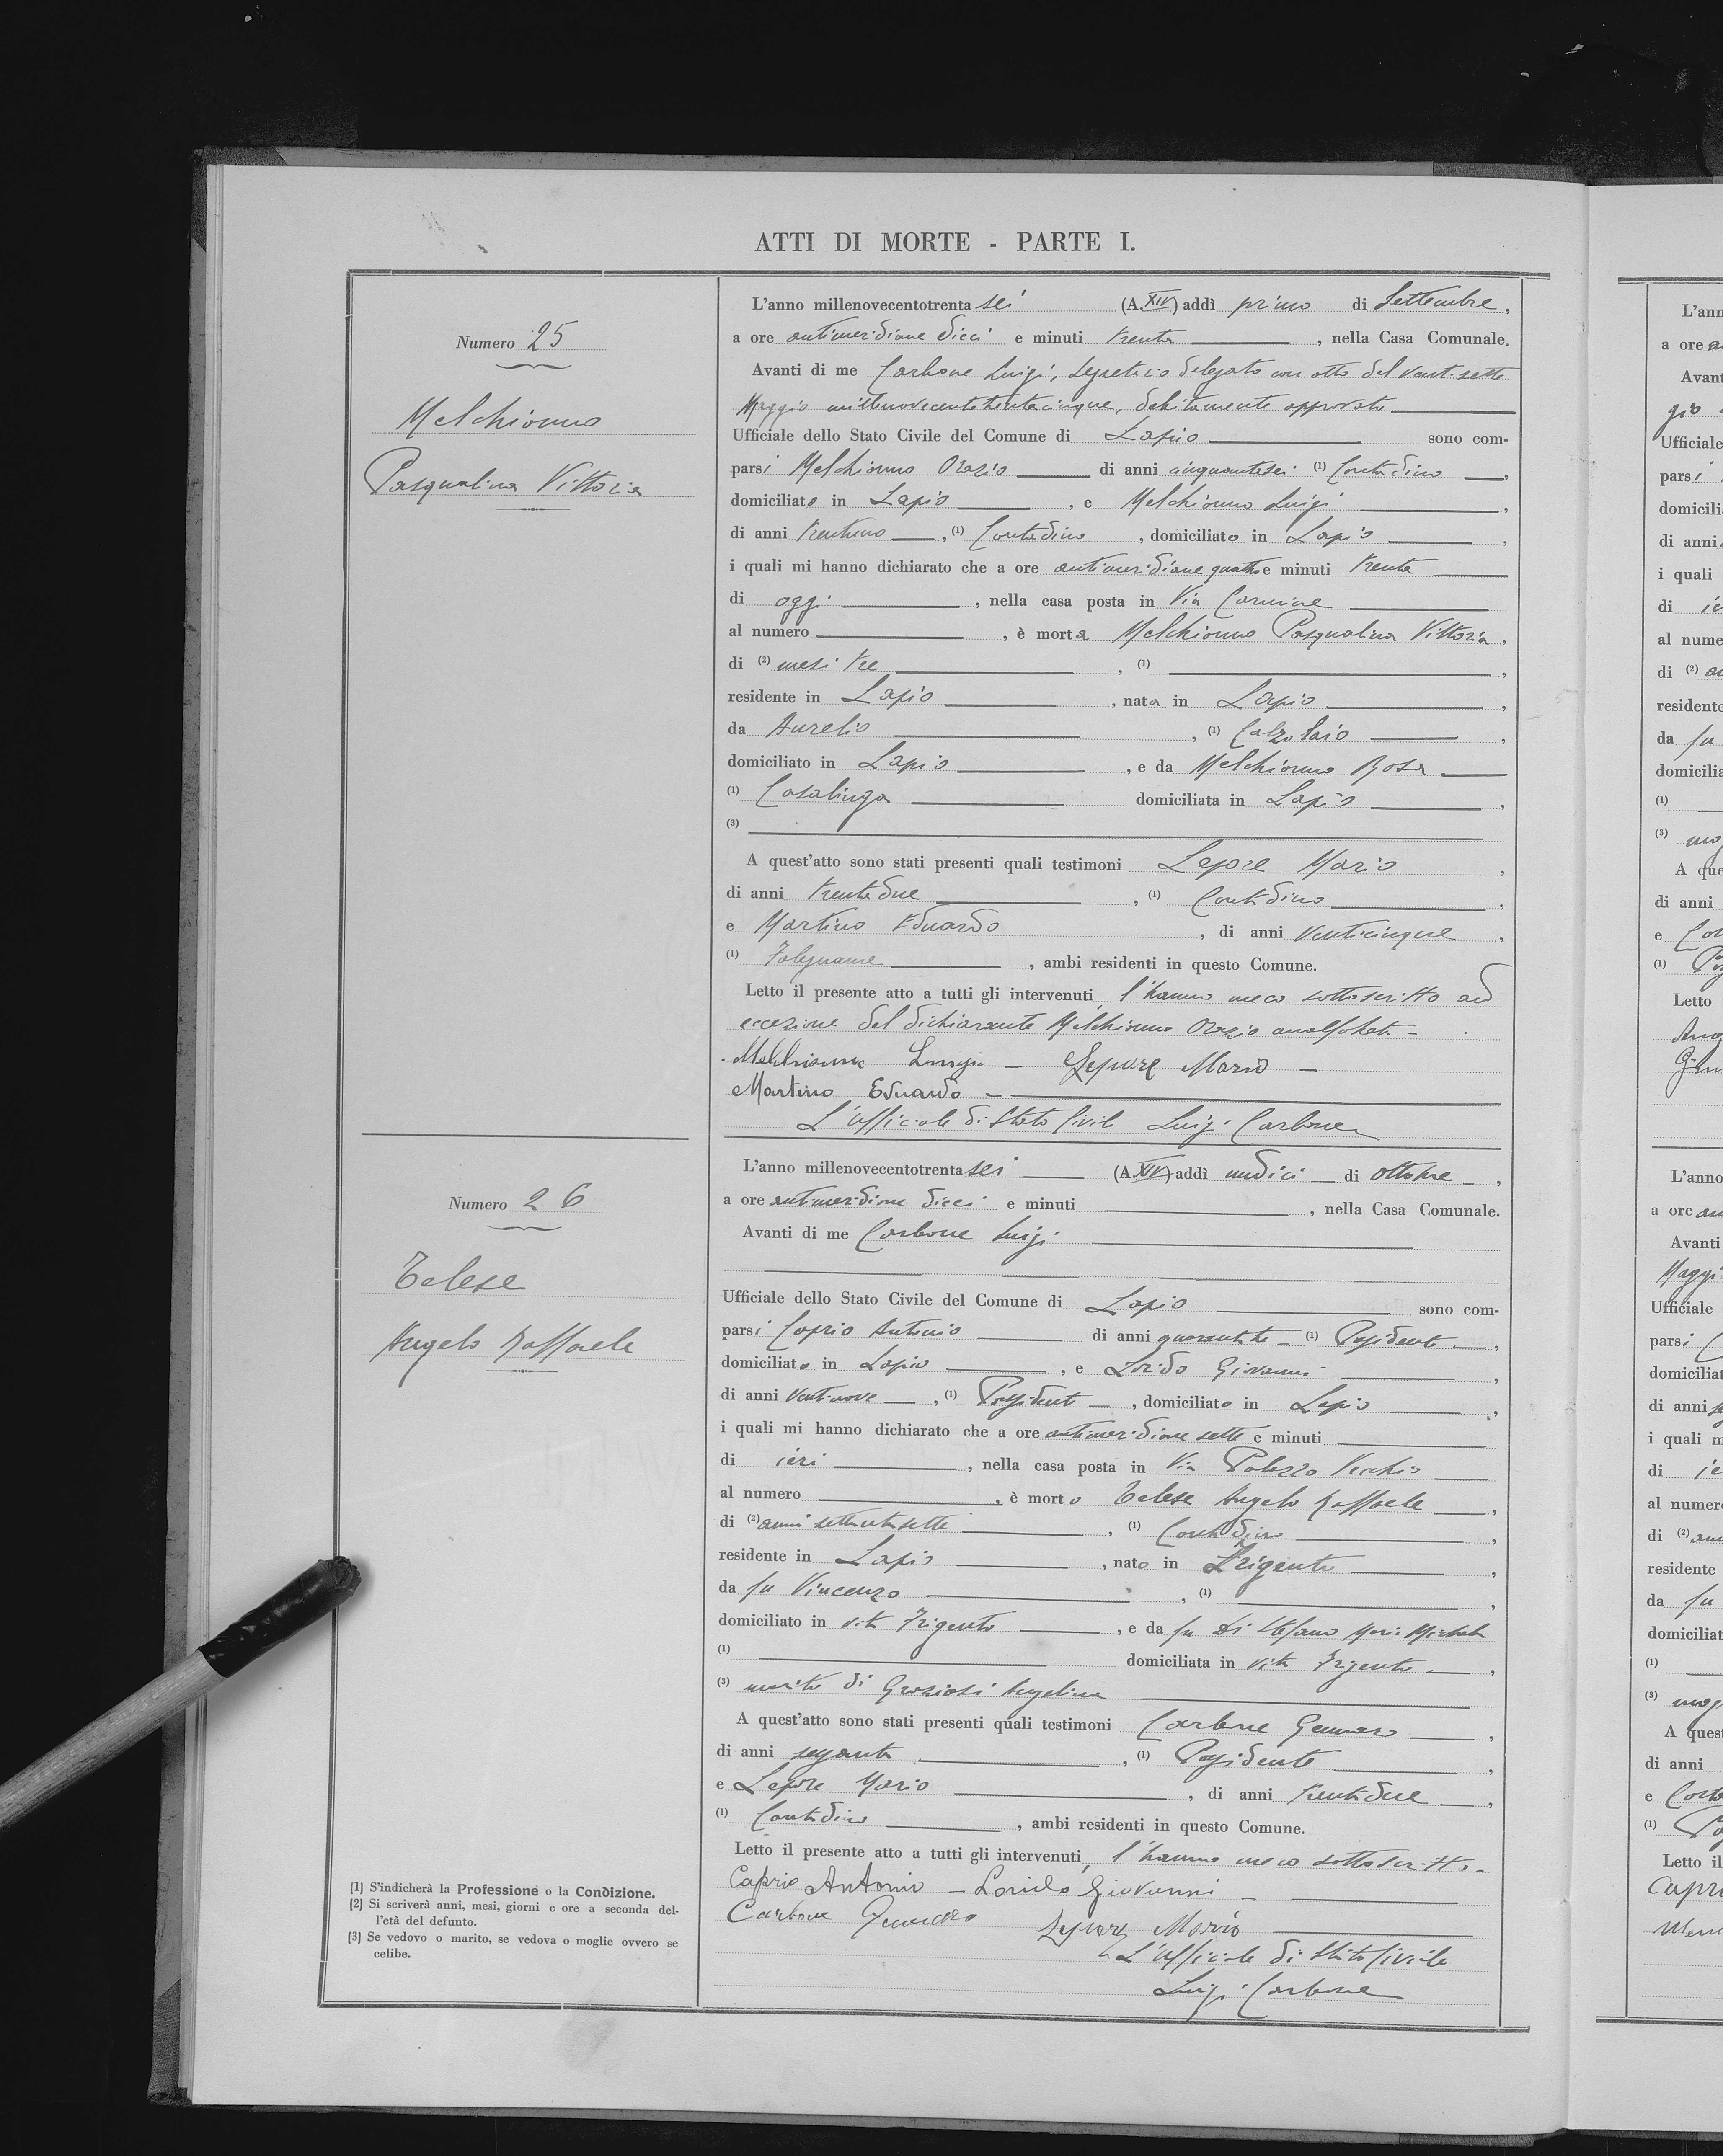 ATTI DI MORTE - PARTE I.
Numero 25
Melchionno
Pasqualina Vittoria
L'anno millenovecentotrenta sei (A. XIV) addì primo di Settembre,
a ore antimeridiane dieci e minuti trenta, nella Casa Comunale.
Avanti di me Carbone Luigi, Segretario delegato con atto del ventisette
Maggio millenovecentotrentacinque, debitamente approvato
Ufficiale dello Stato Civile del Comune di Lapio sono com-
parsi Melchionno Orazio di anni cinquantasei (1) Contadino,
domiciliato in Lapio, e Melchionno Luigi,
di anni trentuno, (1) Contadino, domiciliato in Lapio,
i quali mi hanno dichiarato che a ore antimeridiane quattro e minuti trenta
di oggi, nella casa posta in Via Carmine
al numero, è morta Melchionno Pasqualina Vittoria,
di (2) mesi tre, (1),
residente in Lapio, nata in Lapio,
da Aurelio, (1) Calzolaio,
domiciliato in Lapio, e da Melchionno Rosa
(1) Casalinga domiciliata in Lapio,
(3)
A quest'atto sono stati presenti quali testimoni Lepore Mario,
di anni trentadue, (1) Contadino,
e Martino Eduardo, di anni venticinque,
(1) Falegname, ambi residenti in questo Comune.
Letto il presente atto a tutti gli intervenuti, l'hanno meco sottoscritto ad
eccezione del dichiarante Melchionno Orazio analfabeta -
Melchionno Luigi - Lepore Mario -
Martino Eduardo -
L'ufficiale di Stato Civile Luigi Carbone
Numero 26
Telese
Angelo Raffaele
L'anno millenovecentotrenta sei (A. XIV) addì undici di ottobre,
a ore antimeridiane dieci e minuti, nella Casa Comunale.
Avanti di me Carbone Luigi
Ufficiale dello Stato Civile del Comune di Lapio sono com-
parsi Caprio Antonio di anni quarantatre (1) Possidente,
domiciliato in Lapio, e Lorido Giovanni,
di anni ventinove, (1) Possidente, domiciliato in Lapio,
i quali mi hanno dichiarato che a ore antimeridiane sette e minuti
di ieri, nella casa posta in Via Palazzo Vecchio
al numero, è morto Telese Angelo Raffaele,
di (2) anni settantasette, (1) Contadino,
residente in Lapio, nato in Frigento,
da fu Vincenzo, (1),
domiciliato in vita Frigento, e da fu Di Stefano Maria Michela
(1) domiciliata in vita Frigento,
(3) marito di Graziosi Angelina
A quest'atto sono stati presenti quali testimoni Carbone Gennaro,
di anni sessanta, (1) Possidente,
e Lepore Mario, di anni trentadue,
(1) Contadino, ambi residenti in questo Comune.
Letto il presente atto a tutti gli intervenuti, l'hanno meco sottoscritto.
Caprio Antonio - Lorido Giovanni -
Carbone Gennaro Lepore Mario
L'ufficiale di Stato Civile
Luigi Carbone
(1) S'indicherà la Professione o la Condizione.
(2) Si scriverà anni, mesi, giorni e ore a seconda del-
l'età del defunto.
(3) Se vedovo o marito, se vedova o moglie ovvero se
celibe.